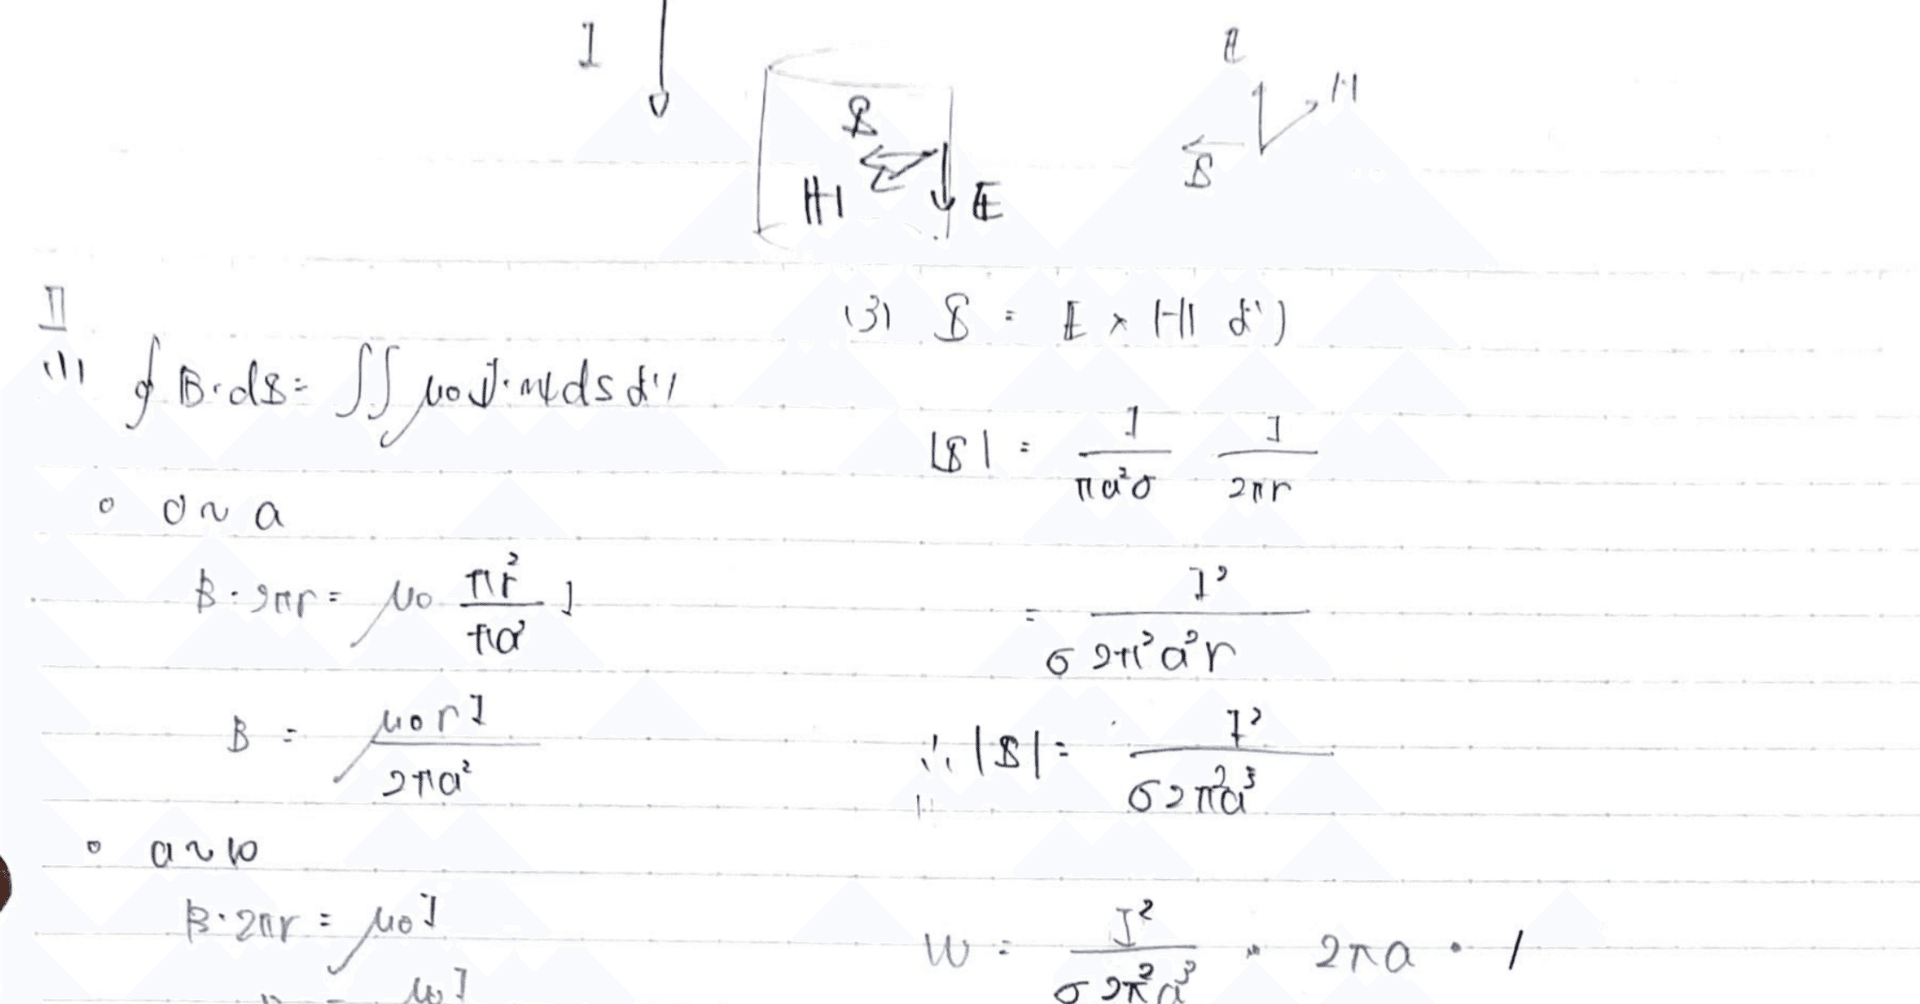 I
S
H
E
E
H
S
II
(1) ∮ B・dS = ∬ μ0 J・n dS より
○ 0 ~ a
B・2πr = μ0 πr²/πa² I
B = μ0 r I / 2πa²
○ a ~ ∞
B・2πr = μ0 I
μ0 I
(3) S = E × H より
|S| = I/πa²σ I/2πr
= I² / σ2π²a²r
∴ |S| = I² / σ2π²a³
W = I² / σ2π²a³ × 2πa・1